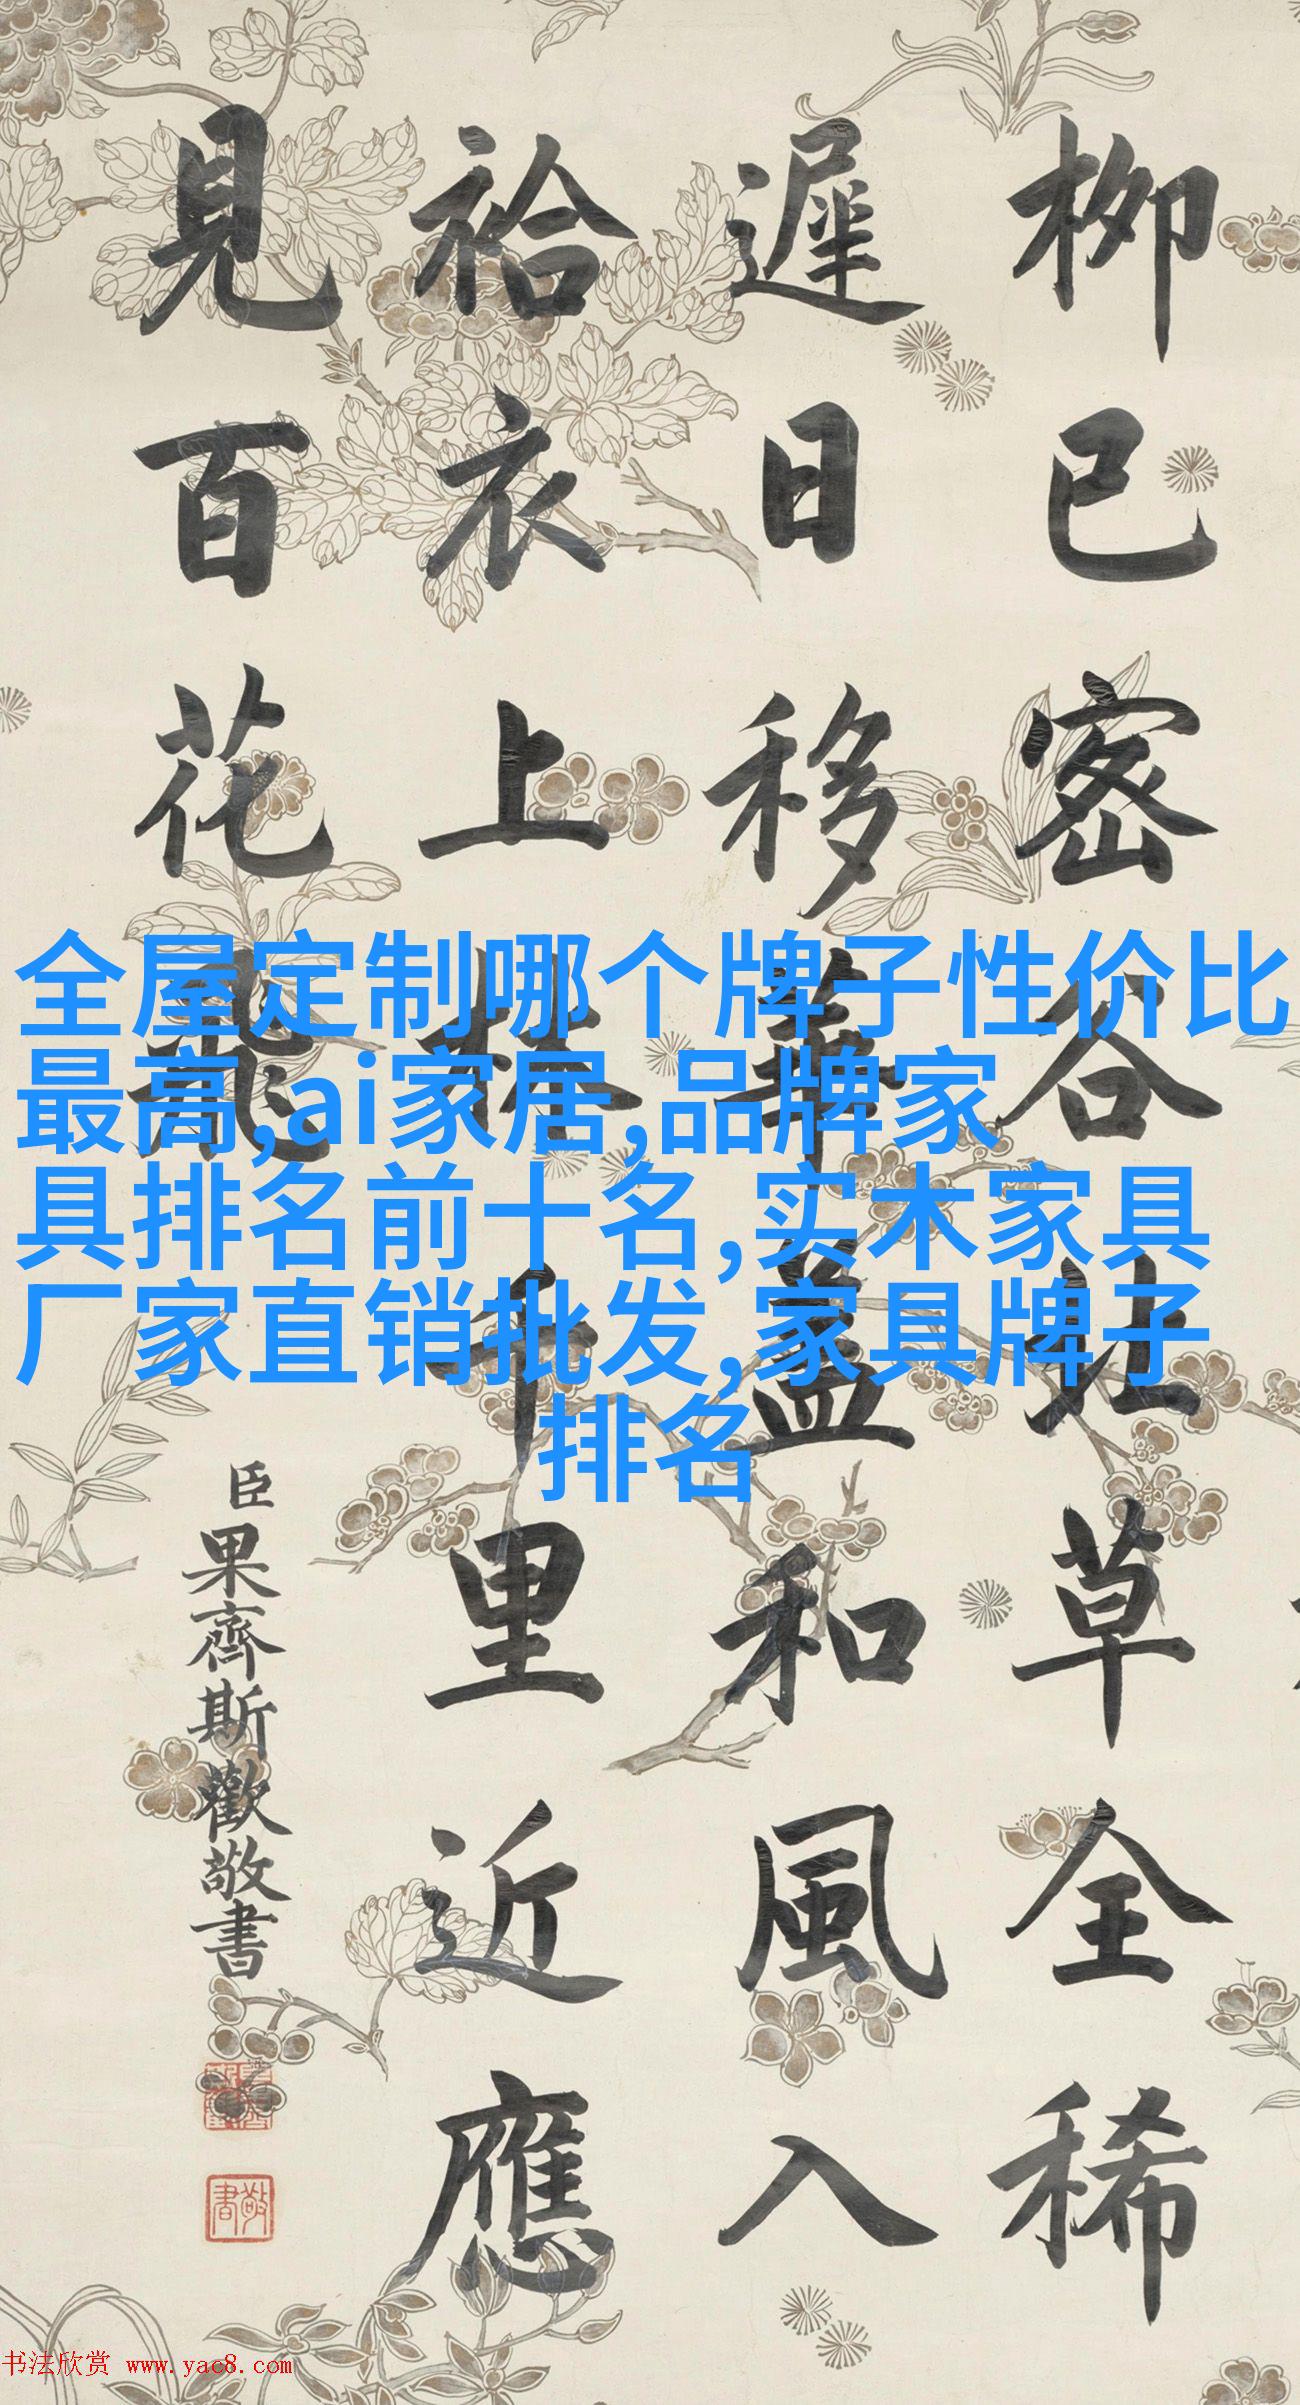 柳已密谷北草全稀
遲日移華蓋和風入
袷衣上樓千里近應
見百花飛
臣果齊斯歡敬書
敬書
全屋定制哪个牌子性价比
最高,ai家居,品牌家
具排名前十名,实木家具
厂家直销批发,家具牌子
排名
书法欣赏 www.yac8.com